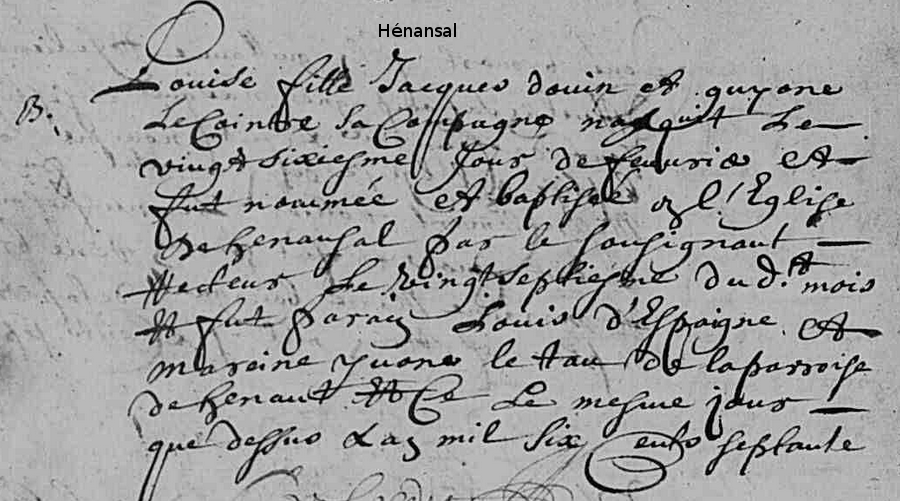 Hénansal
Louise fille Jacques douin et guyone
B. LeCointre Sa Compagne nasquit Le
vingt sixiesme Jour de feuurier Et
fut nommée et baptisée en l'Eglise
de henansal par le sousignant
Recteur Le vingt septiesme du d.t mois
et fut parain Louis d'Espaigne et
mareine yuone le tau de laparroise
de henant et Ce Le mesme jour
que dessus Lan mil six Cents septante